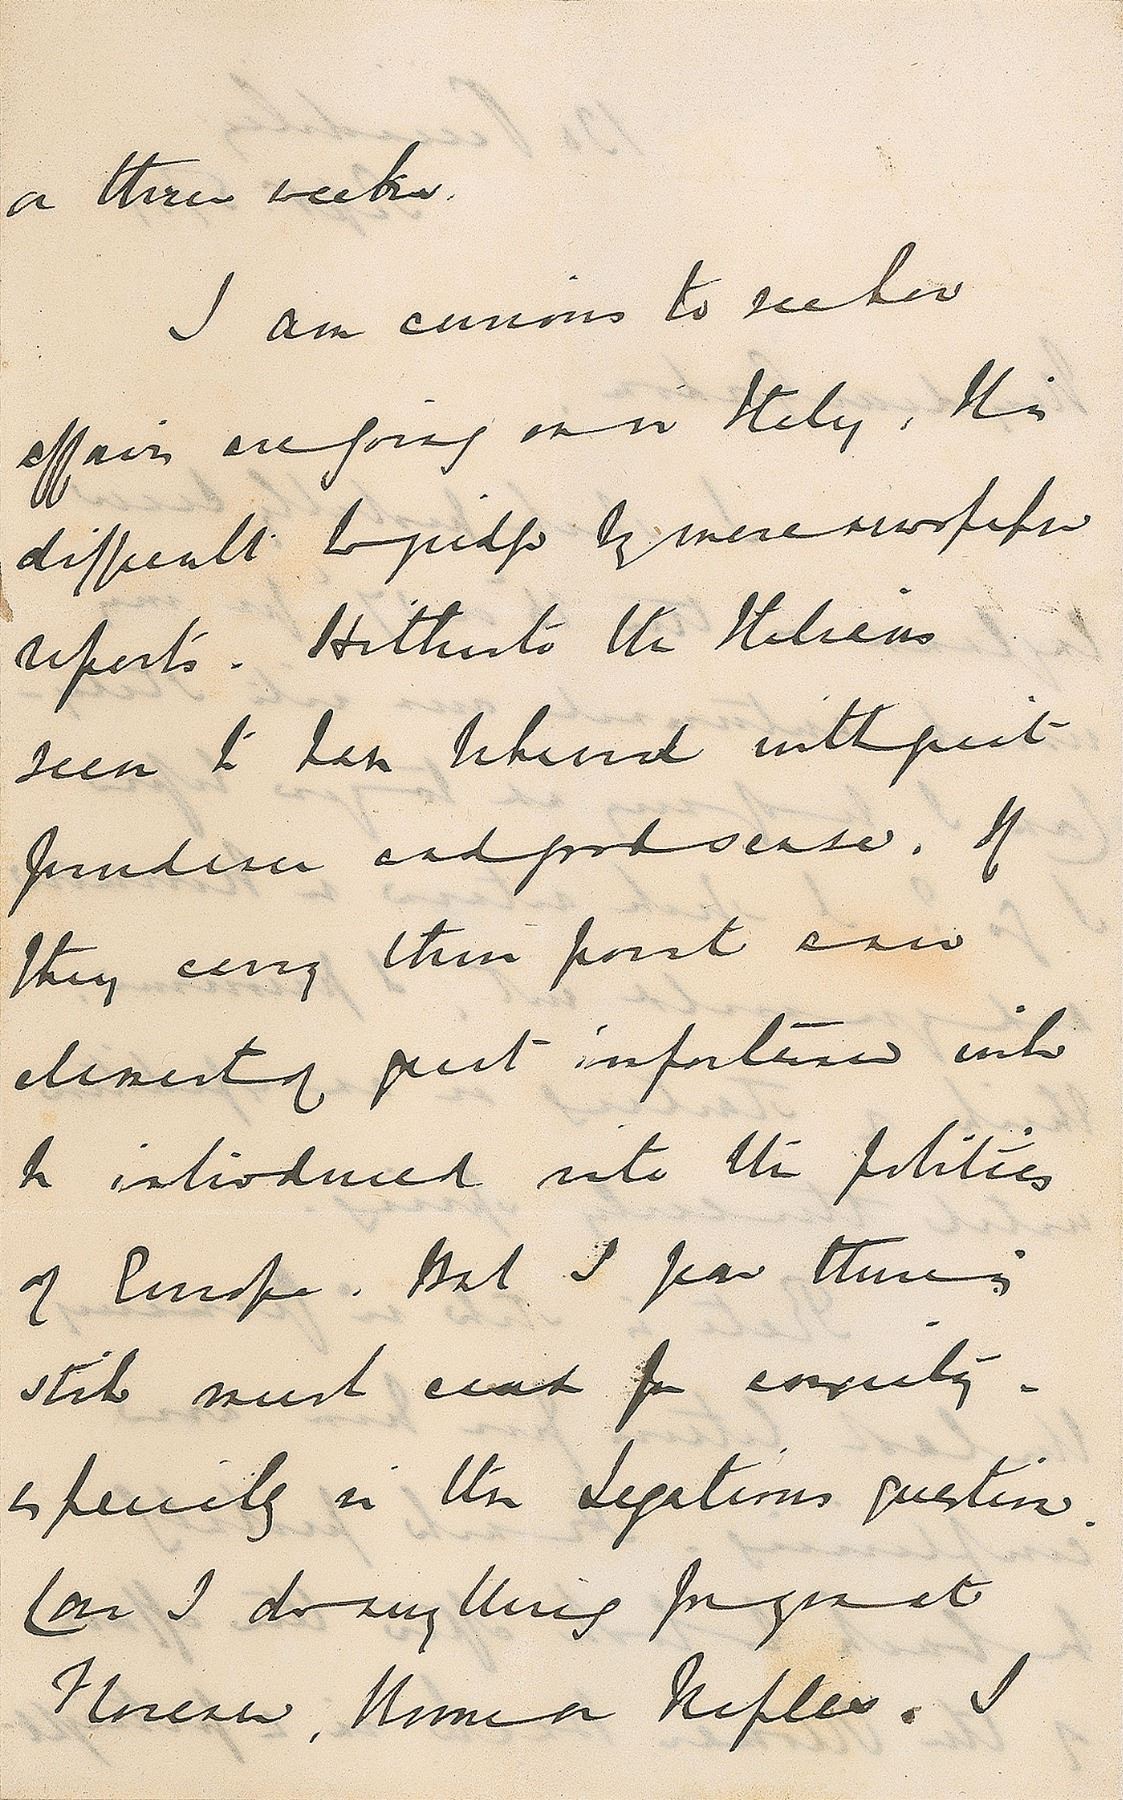 or three weeks.
I am curious to see how
affairs are going on in Italy, tis
difficult to judge by mere newspaper
reports. Hitherto the Italians
seem to have behaved with great
prudence and good sense. If
they carry their point a new
element of great importance will
be introduced into the politics
of Europe. But I fear there is
still much cause for anxiety -
especially in the Legations question.
Can I do anything for you at
Florence, Rome or Naples. I